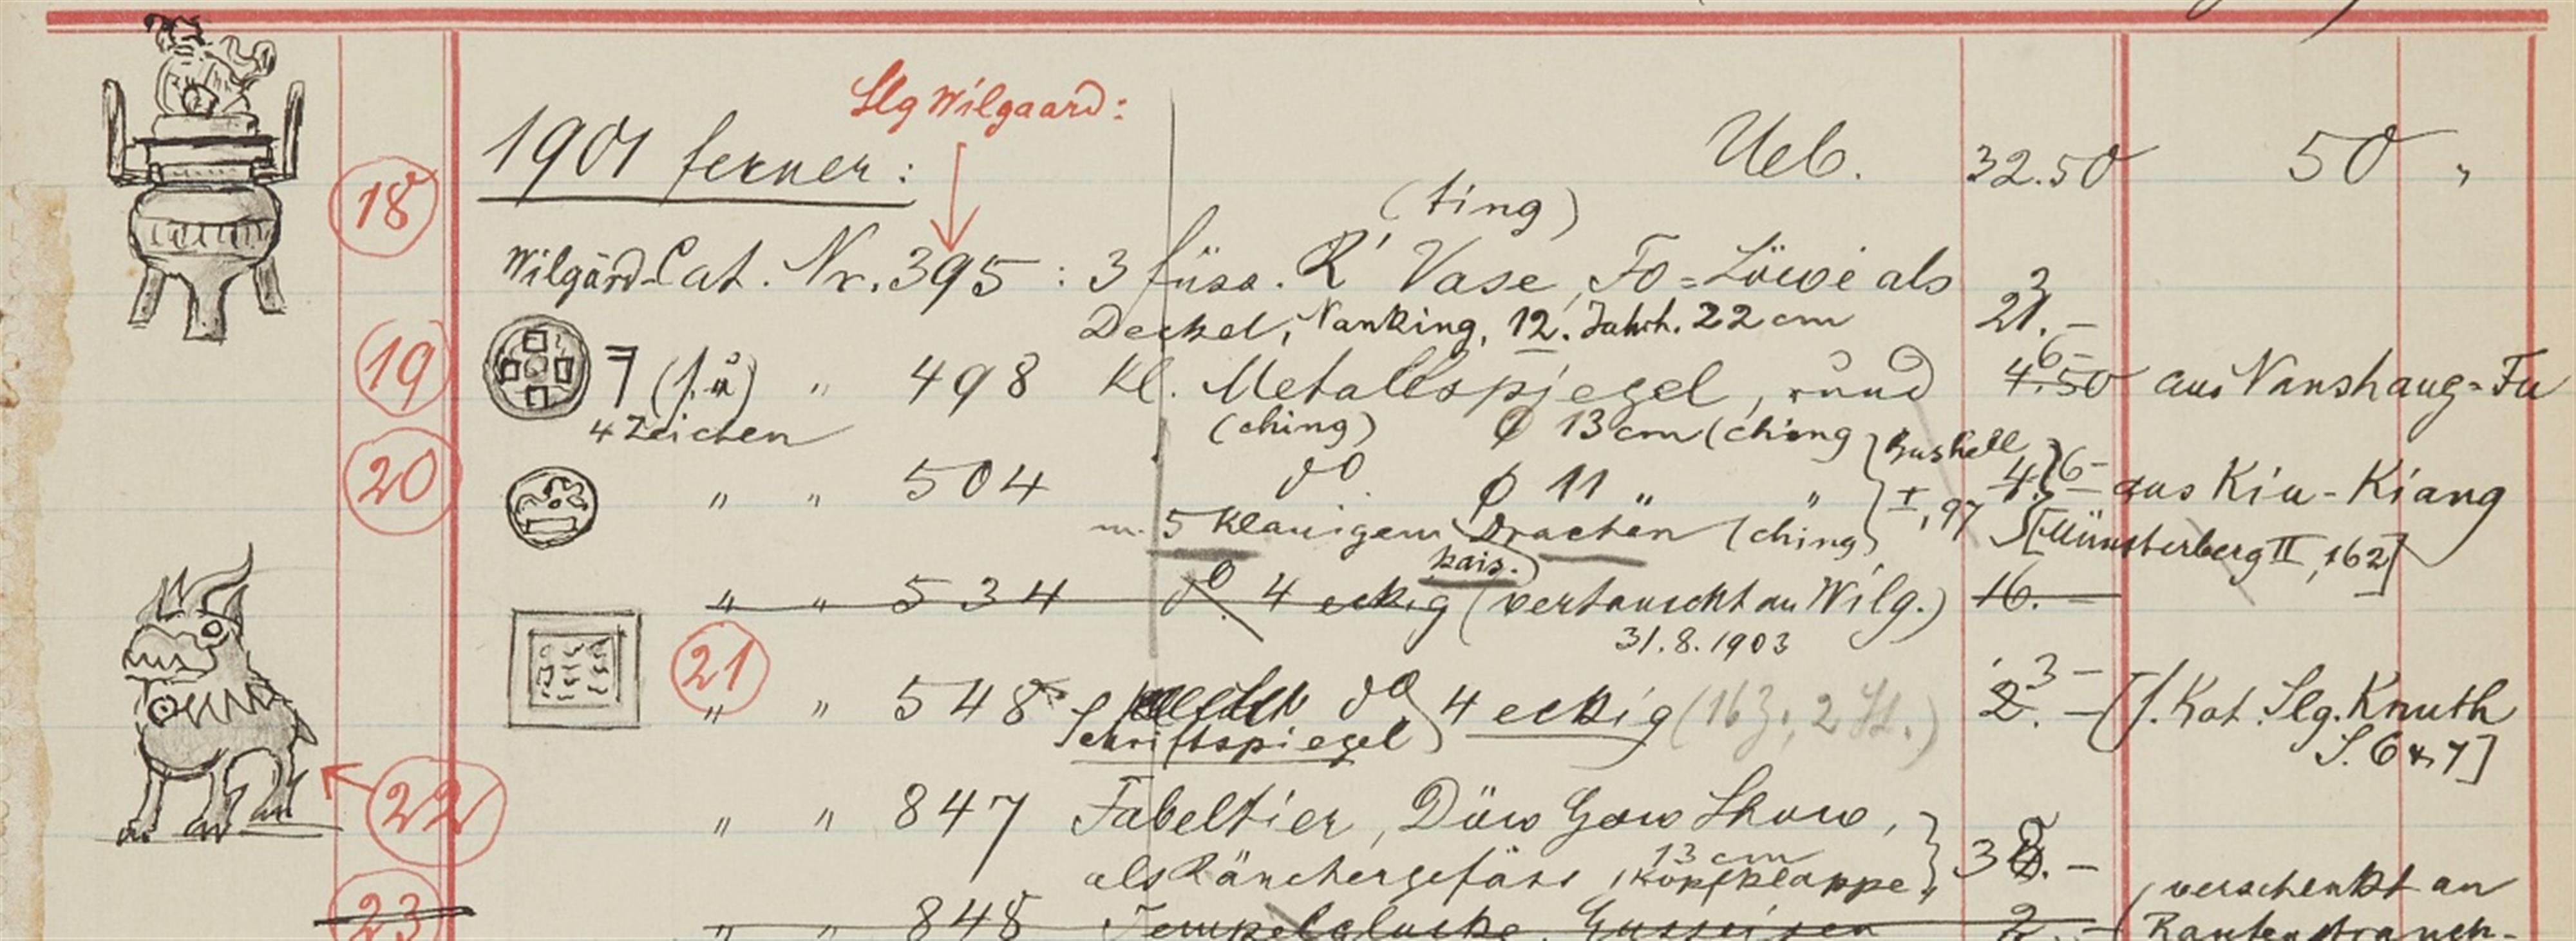 Slg Wilgaard:
1901 ferner: Ueb. 32.50 50 "
18 (ting)
Wilgård-Cat. Nr. 395 : 3 füss. R' Vase, Fo=Löwe als
Deckel, Nanking, 12. Jahrh. 22 cm 21.- 3
19 7 " 498 kl. Metallspiegel, rund 4.50 6- aus Nanshang=Fu
4 Zeichen (ching) ø 13 cm (ching } Bushell
20 " " 504 do. ø 11 " " } I, 97 4.- 6- aus Kiu-Kiang
m. 5 klauigem Drachen (ching) [Münsterberg II, 162]
kais.
" " 534 do 4 eckig (vertauscht an Wilg.) 16.-
31.8.1903
21 " " 548 do 4 eckig (16 Z., 2 St.) 2.- 3- [s. Kat. Slg. Knuth
Schriftspiegel) S. 6 u. 7]
22 " " 847 Fabeltier, Döw Gow Show,
als Räuchergefäss, Kopfklappe, 13 cm
23 " " 848 Tempelglocke, Gusseisen 2.- verschenkt an
Rautenstrauch-